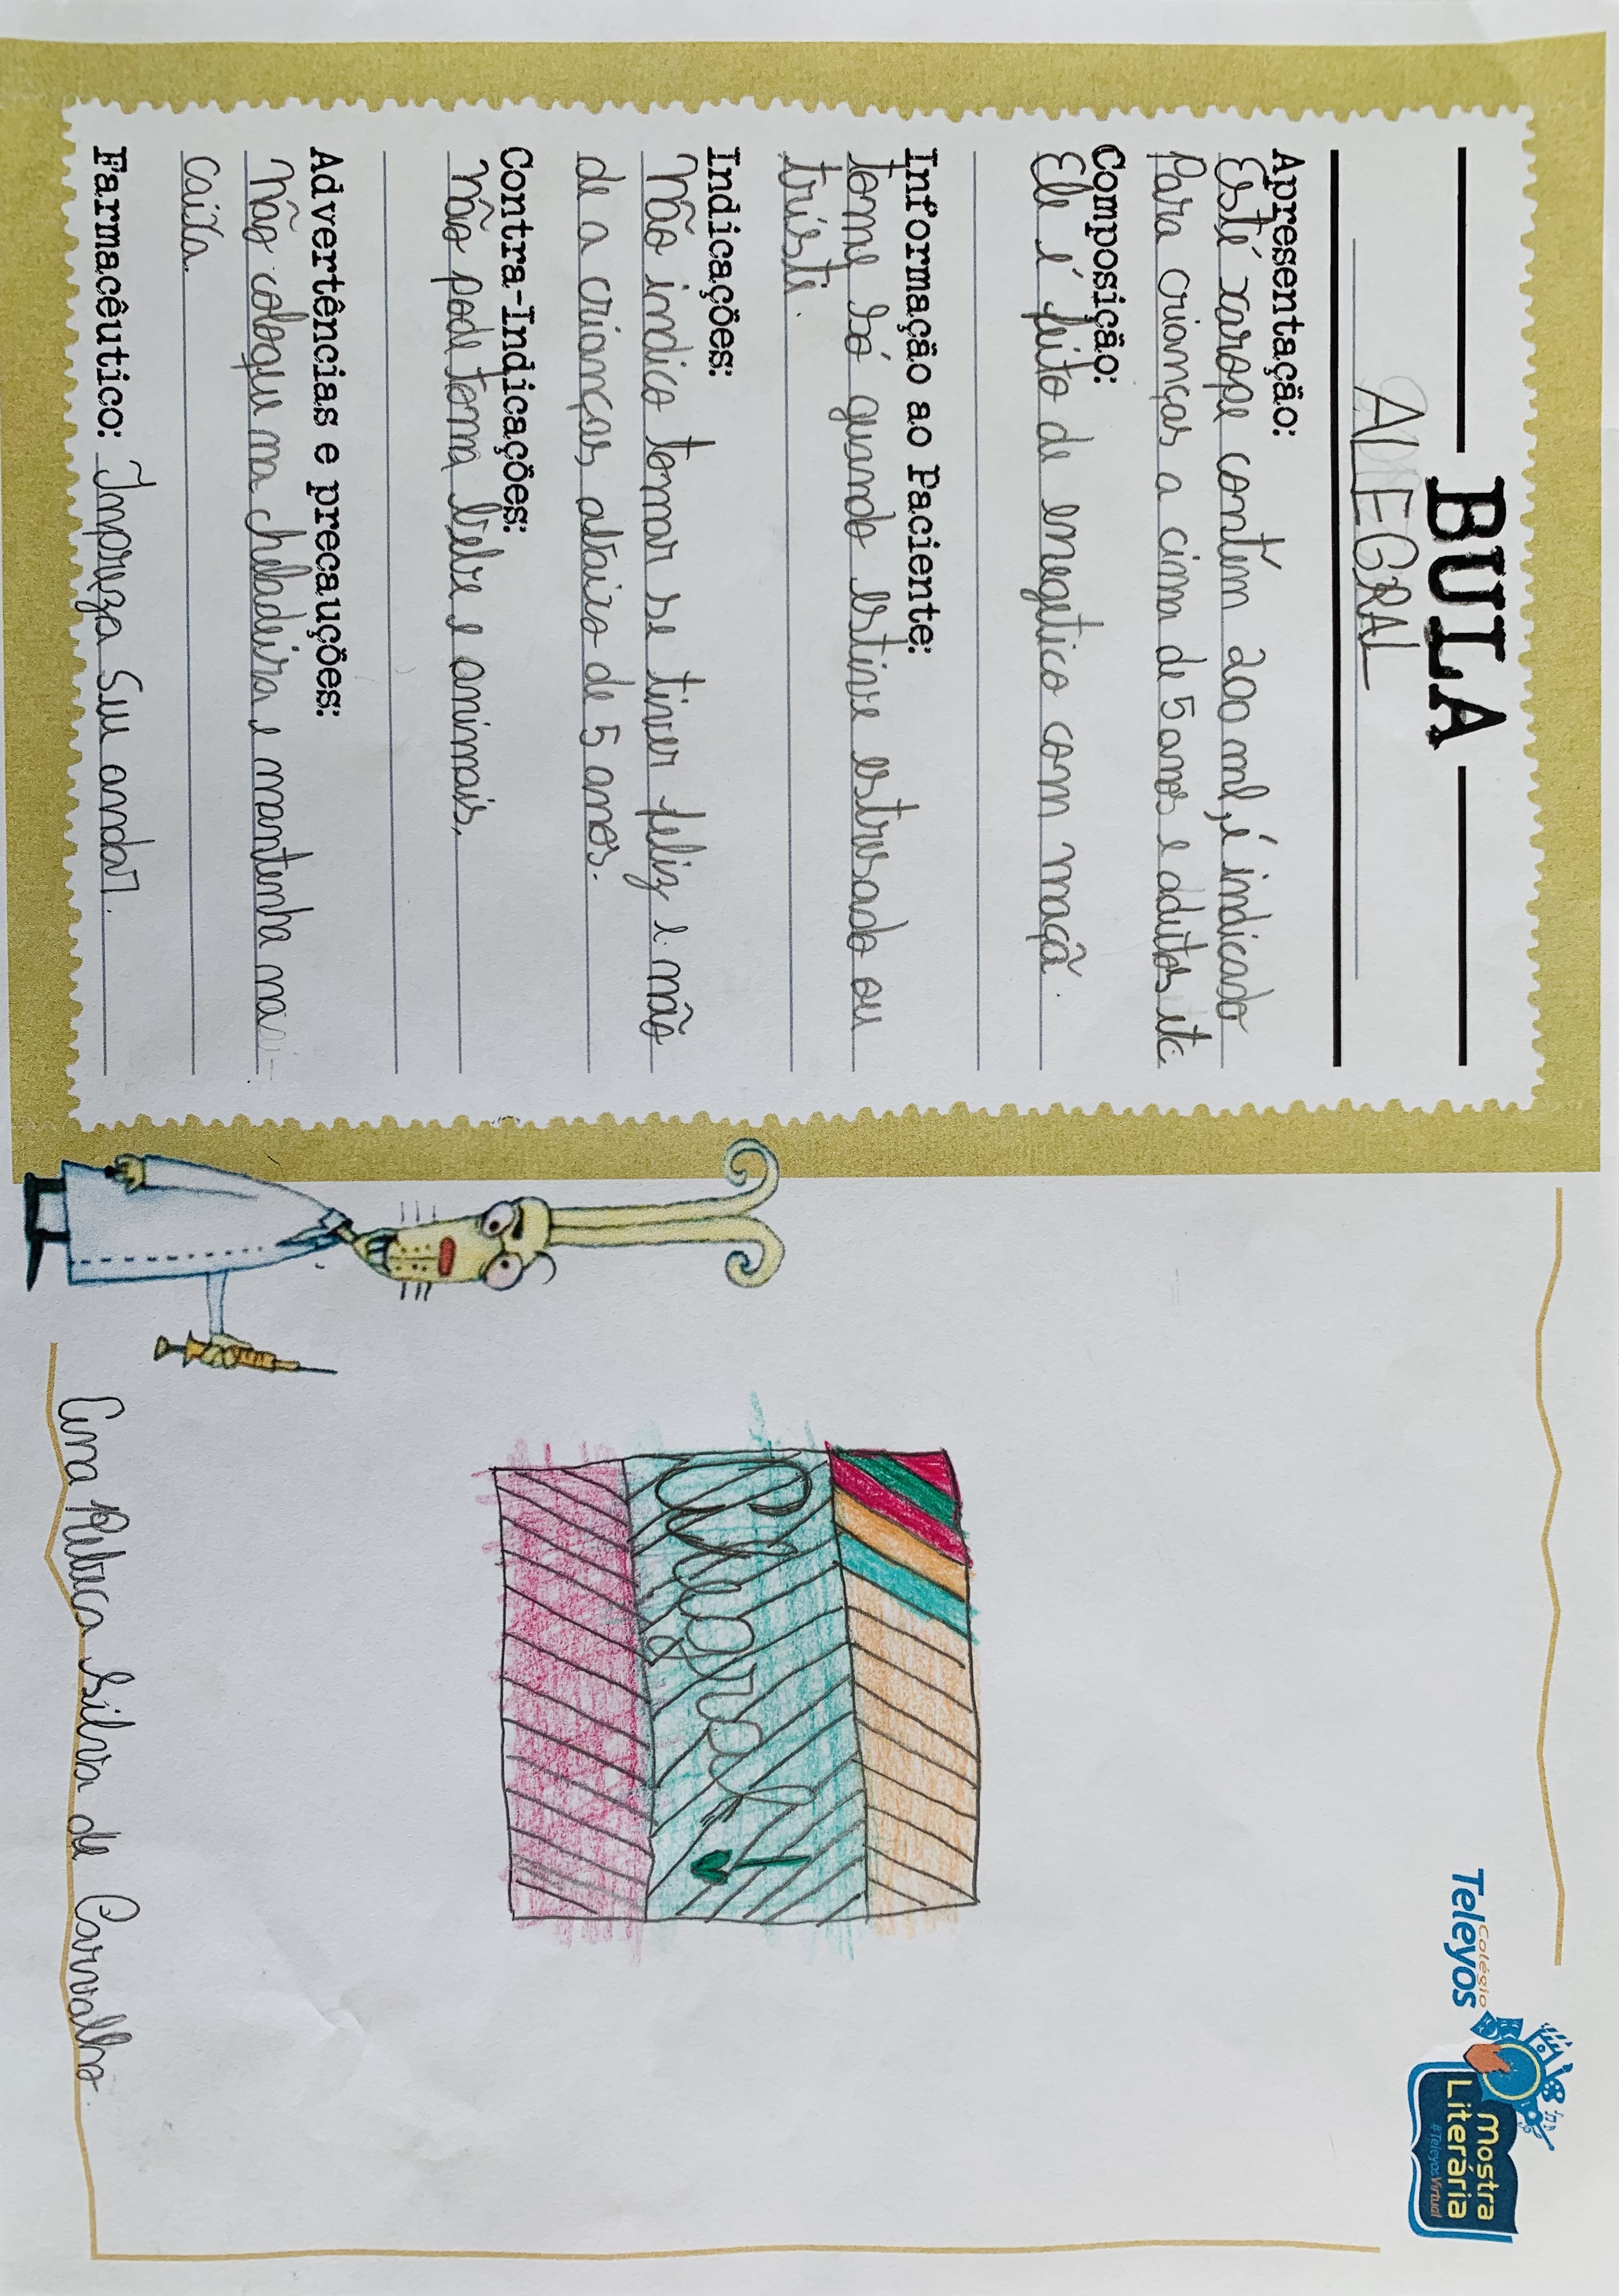 BULA
ALEGRAL
Apresentação:
Esté xarope contém 200 ml, é indicado
Para crianças a cima de 5 anos e adutos etc
Composição:
Ele é feito de enegetico com maçã.
Informação ao Paciente:
tome só quando estive estresado ou
triste.
Indicações:
Não indico tomar se tiver feliz e não
de a crianças abaixo de 5 anos.
Contra-Indicações:
Não pode toma bebe e animais.
Advertências e precauções:
Não coloque na cheladeira e mantenha na
caixa.
Farmacêutico: Impreza Seu andar.
Colégio
Teleyos
Mostra
Literária
#TeleyosVirtual
Alegral
Ana Rebeca Silva de Carvalho